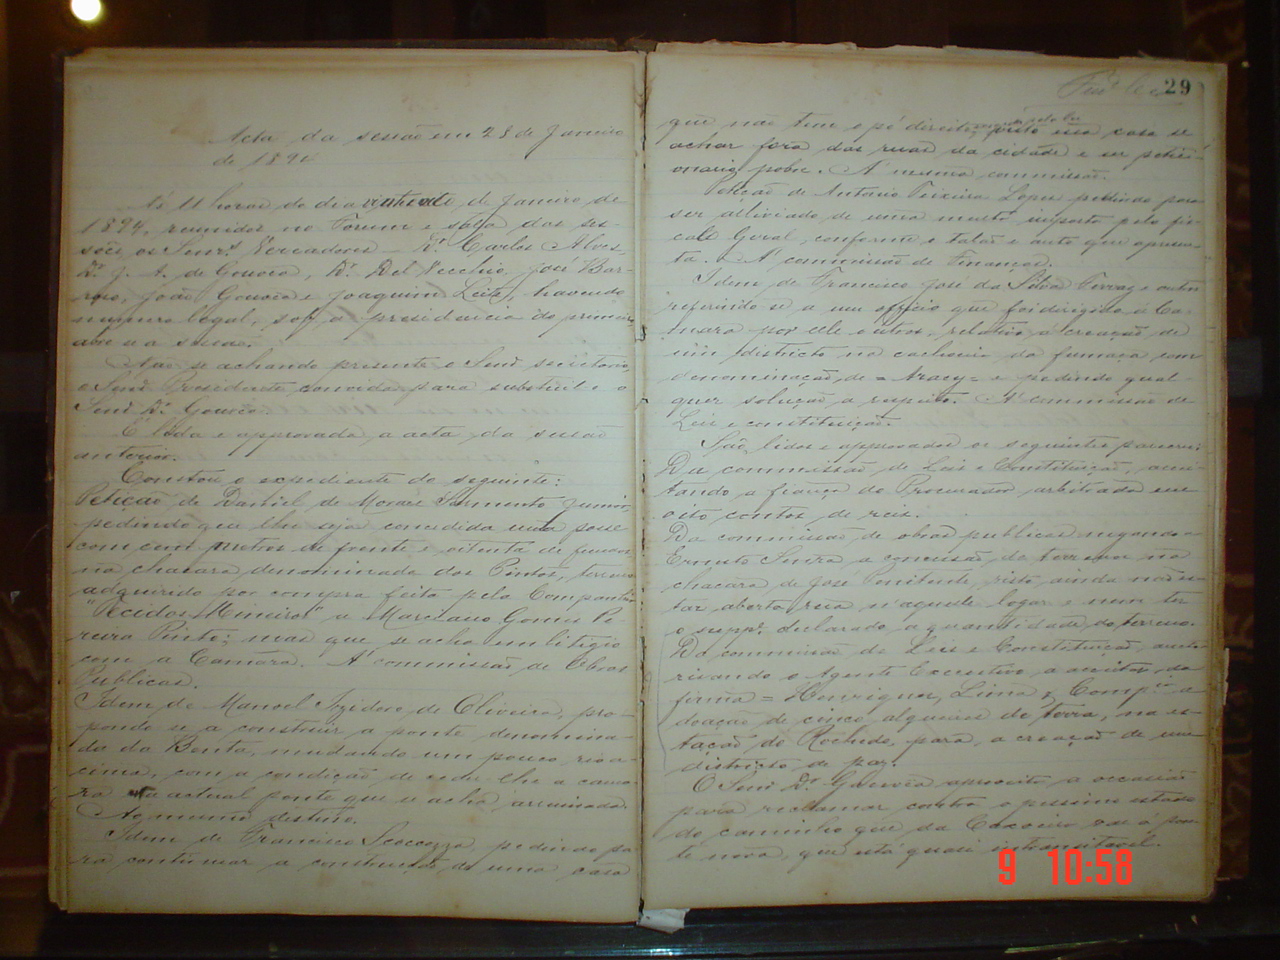 Acta da sessão em 28 de Janeiro
de 1894
Ás 11 horas do dia vinte oito de Janeiro de
1894, reunidos no Forum e sala das ses-
sões os Senrs. Vereadores Dr. Carlos Alves,
Dr. J. A. de Gouvêa, Dr. Del Vecchio, José Bar-
roso, João Gouvêa e Joaquim Leite, havendo
numero legal, sob a presidencia do primeiro
abre-se a sessão.
Não se achando presente o Senr. secretario
o Senr. Presidente convida para substituil-o o
Senr. Dr. Gouvêa.
É lida e approvada a acta da sessão
anterior.
Constou o expediente do seguinte:
Petição de Daniel de Moraes Sarmento Junior
pedindo que lhe seja concedida uma posse
com cem metros de frente e oitenta de fundos
na chacara denominada dos Pintos, terreno
adquirido por compra feita pela Companhia
"Tecidos Mineiros" a Marciano Gomes Pe-
reira Pinto; mas que se acha em litigio
com a Camara. Á commissão de Obras
Publicas.
Idem de Manoel Izidoro de Oliveira, pro-
pondo-se a construir a ponte denomina-
da da Benta, mudando um pouco, rio a
cima, com a condição de ceder-lhe a cama-
ra a actual ponte que se acha arruinada.
Ao mesmo destino.
Idem de Francisco Scocozza, pedindo pa-
ra continuar a construcção de uma casa
29
que não tem o pé direito, visto essa casa se
achar fora das ruas da cidade e ser petici-
onario pobre. Á mesma commissão.
Petição de Antonio Teixeira Lopes pedindo para
ser alliviado de uma multa imposta pelo fis-
cal Geral, conforme o talão e auto que apresen-
ta. Á commissão de Finanças.
Idem de Francisco José da Silva e outros
referindo-se a um officio que foi dirigido á Ca-
mara por elle e outros, relativo á creação de
um districto na cachoeira da fumaça com
denominação de = Aracy = e pedindo qual-
quer solução a respeito. Á commissão de
Leis e constituição.
São lidos e approvados os seguintes pareceres:
Da commissão de Leis e Constituição, acei-
tando a fiança do Procurador, arbitrada em
oito contos de reis.
Da commissão de obras publicas negando a
Ernesto Senra a concessão de terreno na
chacara de José Penitente, visto ainda não es-
tar aberta rua n'aquelle logar e nem ter
o suppe. declarado a quantidade do terreno.
Da commissão de Leis e Constituição, auto-
risando o Agente Executivo a acceitar da
firma = Henriques, Lima & Compa. a
doação de cinco alqueires de terra, na es-
tação do Rochedo, para a creação de um
districto de paz.
O Senr. Dr. Gouvêa aproveita a occasião
para reclamar contra o pessimo estado
do caminho que da vae á pon-
te nova, que está quasi intransitavel.
9 10:58